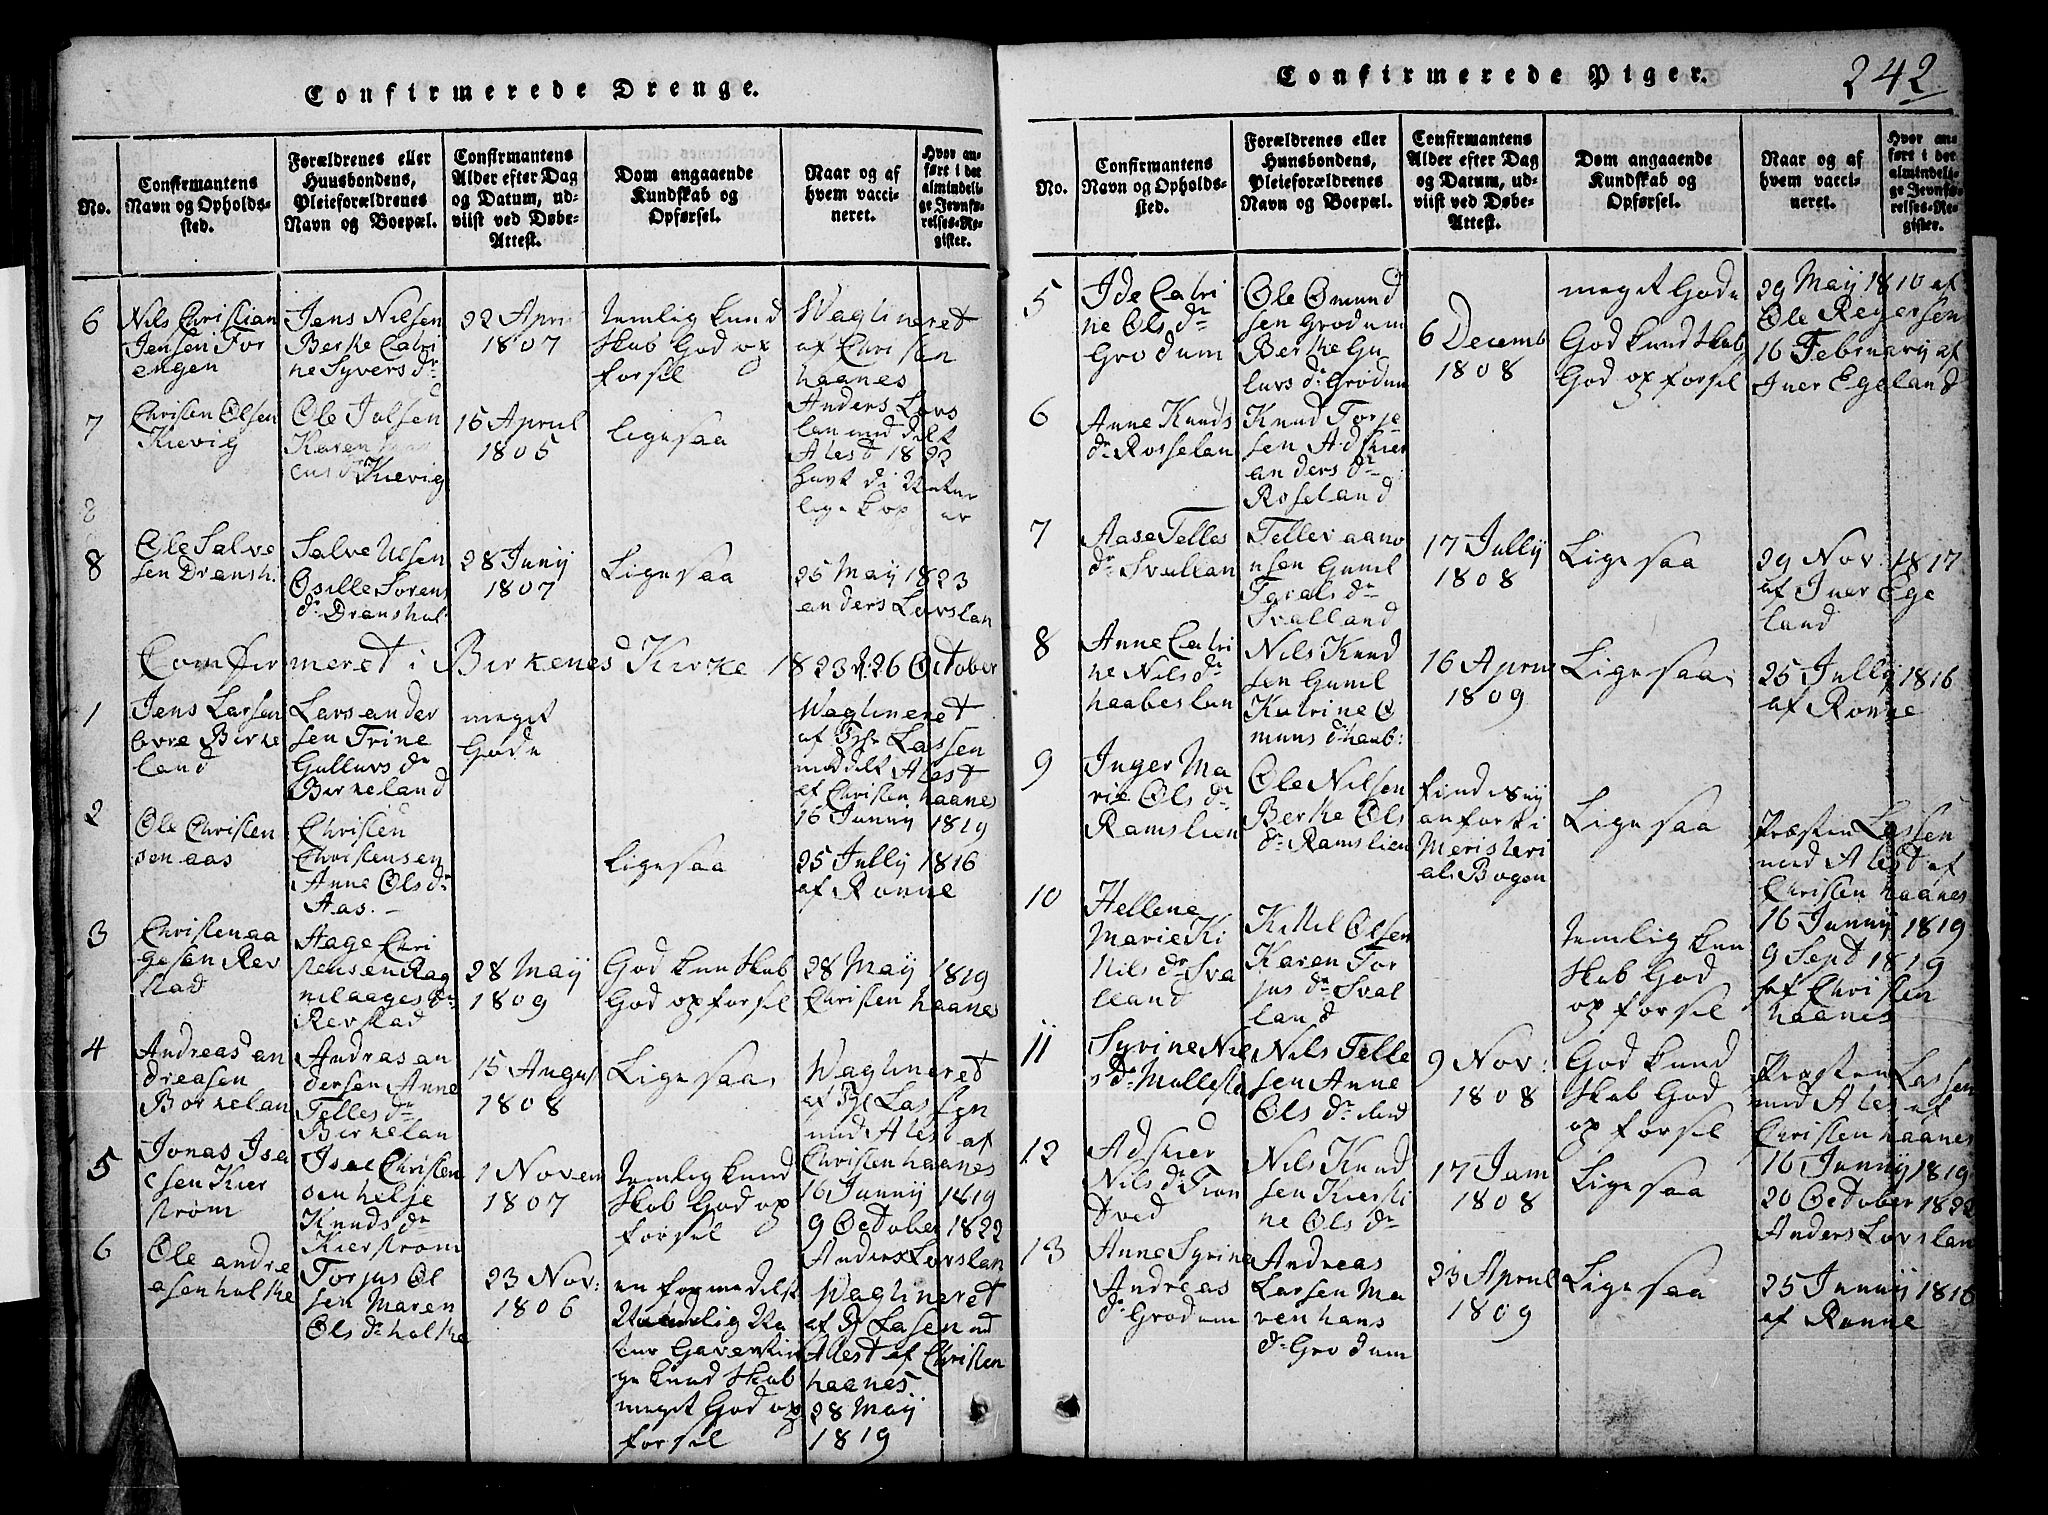 Confirmerede Drenge.
No.
Confirmantens
Navn og Opholds-
sted.
Forældrenes eller
Huusbondens,
Pleieforældrenes
Navn og Boepæl.
Confirmantens
Alder efter Dag
og Datum, ud-
viist ved Døbe-
Attest.
Dom angaaende
Kundskab og
Opførsel.
Naar og af
hvem vacci-
neret.
Hvor an-
ført i det
almindeli-
ge Jevnfø-
relses-Re-
gister.
6
Nils Christian
Jensen For
engen
Jens Nielsen
Berthe Catri
ne Syvers dr
22 April
1807
temlig kund
skab God op
forsel
Waglineret
af Christen
haanes
7
Christen Olsen
Kievig
Ole Jolsen
Karen
ens dr Kievig
15 Aprul
1805
ligesaa
Anders Lovs
lan med delt
Atest 1822
havt di Natur
lige kop er
8
8
Ole Salve
sen Dronsh.
Salve Ulsen
Osille Sorens
dr Dronshul
28 Juny
1807
Lige saa
25 May 1823
anders Lovslan
Comfirmeret i Birkenes Kirke 1823 d. 26 October
1
Jens Larsen
Ovre Birke
land
Lars ander
sen Trine
Gulluvs dr
Birkeland
meget
Gode
Waglineret
af Pr Lassen
meddelt Atest
af Christen haanes
16 Junny 1819
2
Ole Christen
sen aas
Christen
Christensen
Anne Ols dr
Aas.
Lige saa
25 Jully 1816
af Ronne
3
Christen aa
gesen Rev
stad
Aage Chri
stensen Rag
nil aages dr
Revstad
28 May
1809
God kunskab
God opforsel
28 May 1819
Christen haanes
4
Andreas an
dreasen
Borkelan
Andras an
dersen Anne
Telles dr
Birkelan
15 Augus
1808
Lige saa
Waglineret
af Pr Lassen
med Atest af
Christen haanes
16 Junny 1819
5
Jonas Isa
csen Kier
strøm
Isac Christen
sen helje
Knuds dr
Kierstrom
1 Novem
1807
temlig kund
skab God op
forsel
9 October 1822
Anders Lovslan
6
Ole andre
asen holthe
Torjus Ol
sen Maren
Ols dr holthe
23 Nov:
1806
en formedelst
Na
tur Gaver
ge kundskab
meget God op
forsel
Waglineret
af Pr Lasen md
Atest af Christen
haanes
28 May
1819
Confirmerede Piger.
242
No.
Confirmantens
Navn og Opholds-
sted.
Forældrenes eller
Huusbondens,
Pleieforældrenes
Navn og Boepæl.
Confirmantens
Alder efter Dag
og Datum, ud-
viist ved Døbe-
Attest.
Dom angaaende
Kundskab og
Opførsel.
Naar og af
hvem vacci-
neret.
Hvor an-
ført i det
almindeli-
ge Jevnfø-
relses-Re-
gister.
5
Ide Catri
ne Ols dr
Grodum
Ole Omund
sen Grodum
Berthe Gu
luvs dr Grodum
6 Decemb
1808
meget Gode
God kundskab
God opforsel
29 May 1810 af
Ole Regersen
16 February af
Iver Egeland
6
Anne Knuds
dr Rosselan
Knud Torje
sen Adskier
anders dr
Roseland
7
Aase Telles
dr Svallan
Tellev aanv
nsen Gunil
Tarals dr
Svalland
17 Jully
1808
Lige saa
29 Nov. 1817
af Iver Ege
land
8
Anne Catri
ne Nils dr
haabeslan
Nils Knud
sen Gunil
Katrine O
muns dr haab:
16 Aprul
1809
Lige saa
25 Jully 1816
af Ronne
9
Inger Ma
rie Ols dr
Ramslien
Ole Nilsen
Berthe Ols
dr Ramslien
findes ny
anfort i
Meristeri
als Bogen
Lige saa
Præsten Lassen
med Atest af
Christen haanes
16 Junny 1819
10
Hellene
Marie Ki
tils dr Sva
lland
Kittil Olsen
Karen Tor
jus dr Sval
land
temlig kun
skab God
op forsel
9 Sept 1819
af Christen
haanes
11
Syrine Nil
s dr Mollesta
Nils Telle
sen Anne
Ols dr ibid
9 Nov:
1808
God kund
skab God
op forsel
Præsten Lassen
med Atest af
Christen haanes
16 Junny 1819
12
Adskier
Nils dr Tron
dved
Nils Knud
sen Kiersti
ne Ols dr
17 Jam
1808
Lige saa
20 October 1822
Anders Lovslan
13
Anne Syrine
Andreas
dr Grodum
Andreas
Larsen Ma
ren hans
dr Grodum
23 Aprul
1809
Lige saa
25 Junny 1816
af Ronne